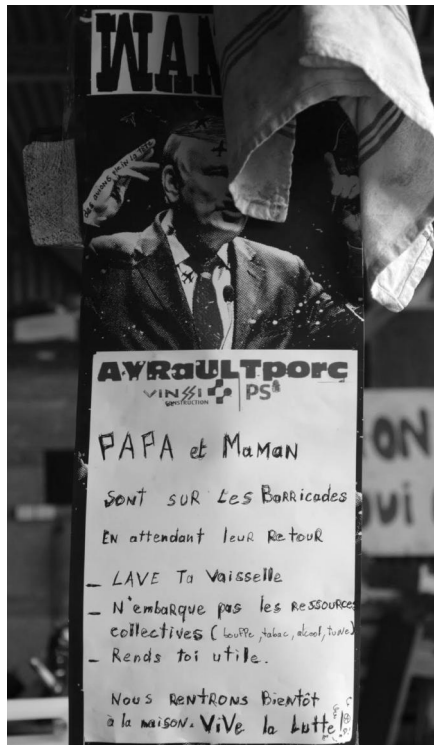 WAN
des avions plein la tête
AYRAULTPORC
VINSSI
CONSTRUCTION
PS
PAPA et MaMaN
SONT SUR LES BaRRicades
EN attendant leur RetouR
- LAVE Ta Vaisselle
- N'embarque pas les RESSOURCES
collectives (bouffe, tabac, alcool, tune)
- Rends toi utile.
NOUS RENTRONS Bientôt
à la maison. ViVe la Lutte!
ON
QUI